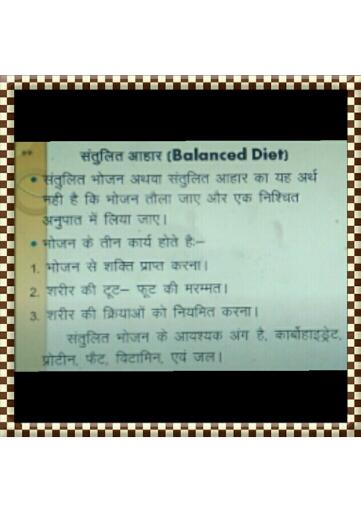 संतुलित आहार (Balanced Diet)
• संतुलित भोजन अथवा संतुलित आहार का यह अर्थ
नही है कि भोजन तौला जाए और एक निश्चित
अनुपात में लिया जाए।
• भोजन के तीन कार्य होते है:–
1. भोजन से शक्ति प्राप्त करना।
2. शरीर की टूट– फूट की मरम्मत।
3. शरीर की क्रियाओं को नियमित करना।
संतुलित भोजन के आवश्यक अंग है, कार्बोहाइड्रेट,
प्रोटीन, फैट, विटामिन, एवं जल।